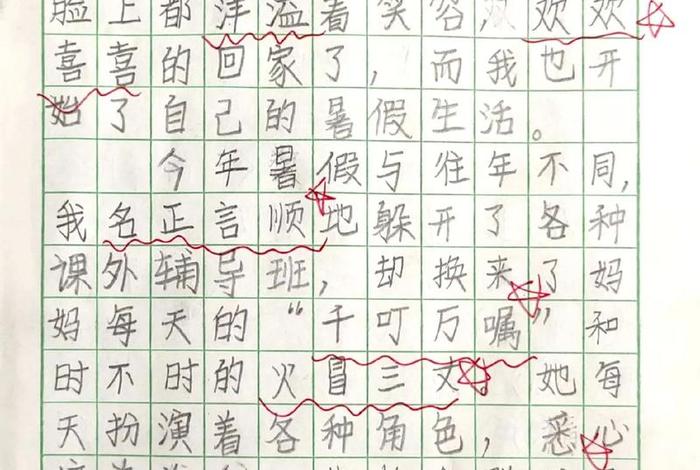 脸上都洋溢着笑容,欢欢
喜喜的回家了，而我也开
始了自己的暑假生活。
今年暑假与往年不同，
我名正言顺地躲开了各种
课外辅导班，却换来了妈
妈每天的“千叮万嘱”和
时不时的火冒三丈。她每
天扮演着各种角色，悉心